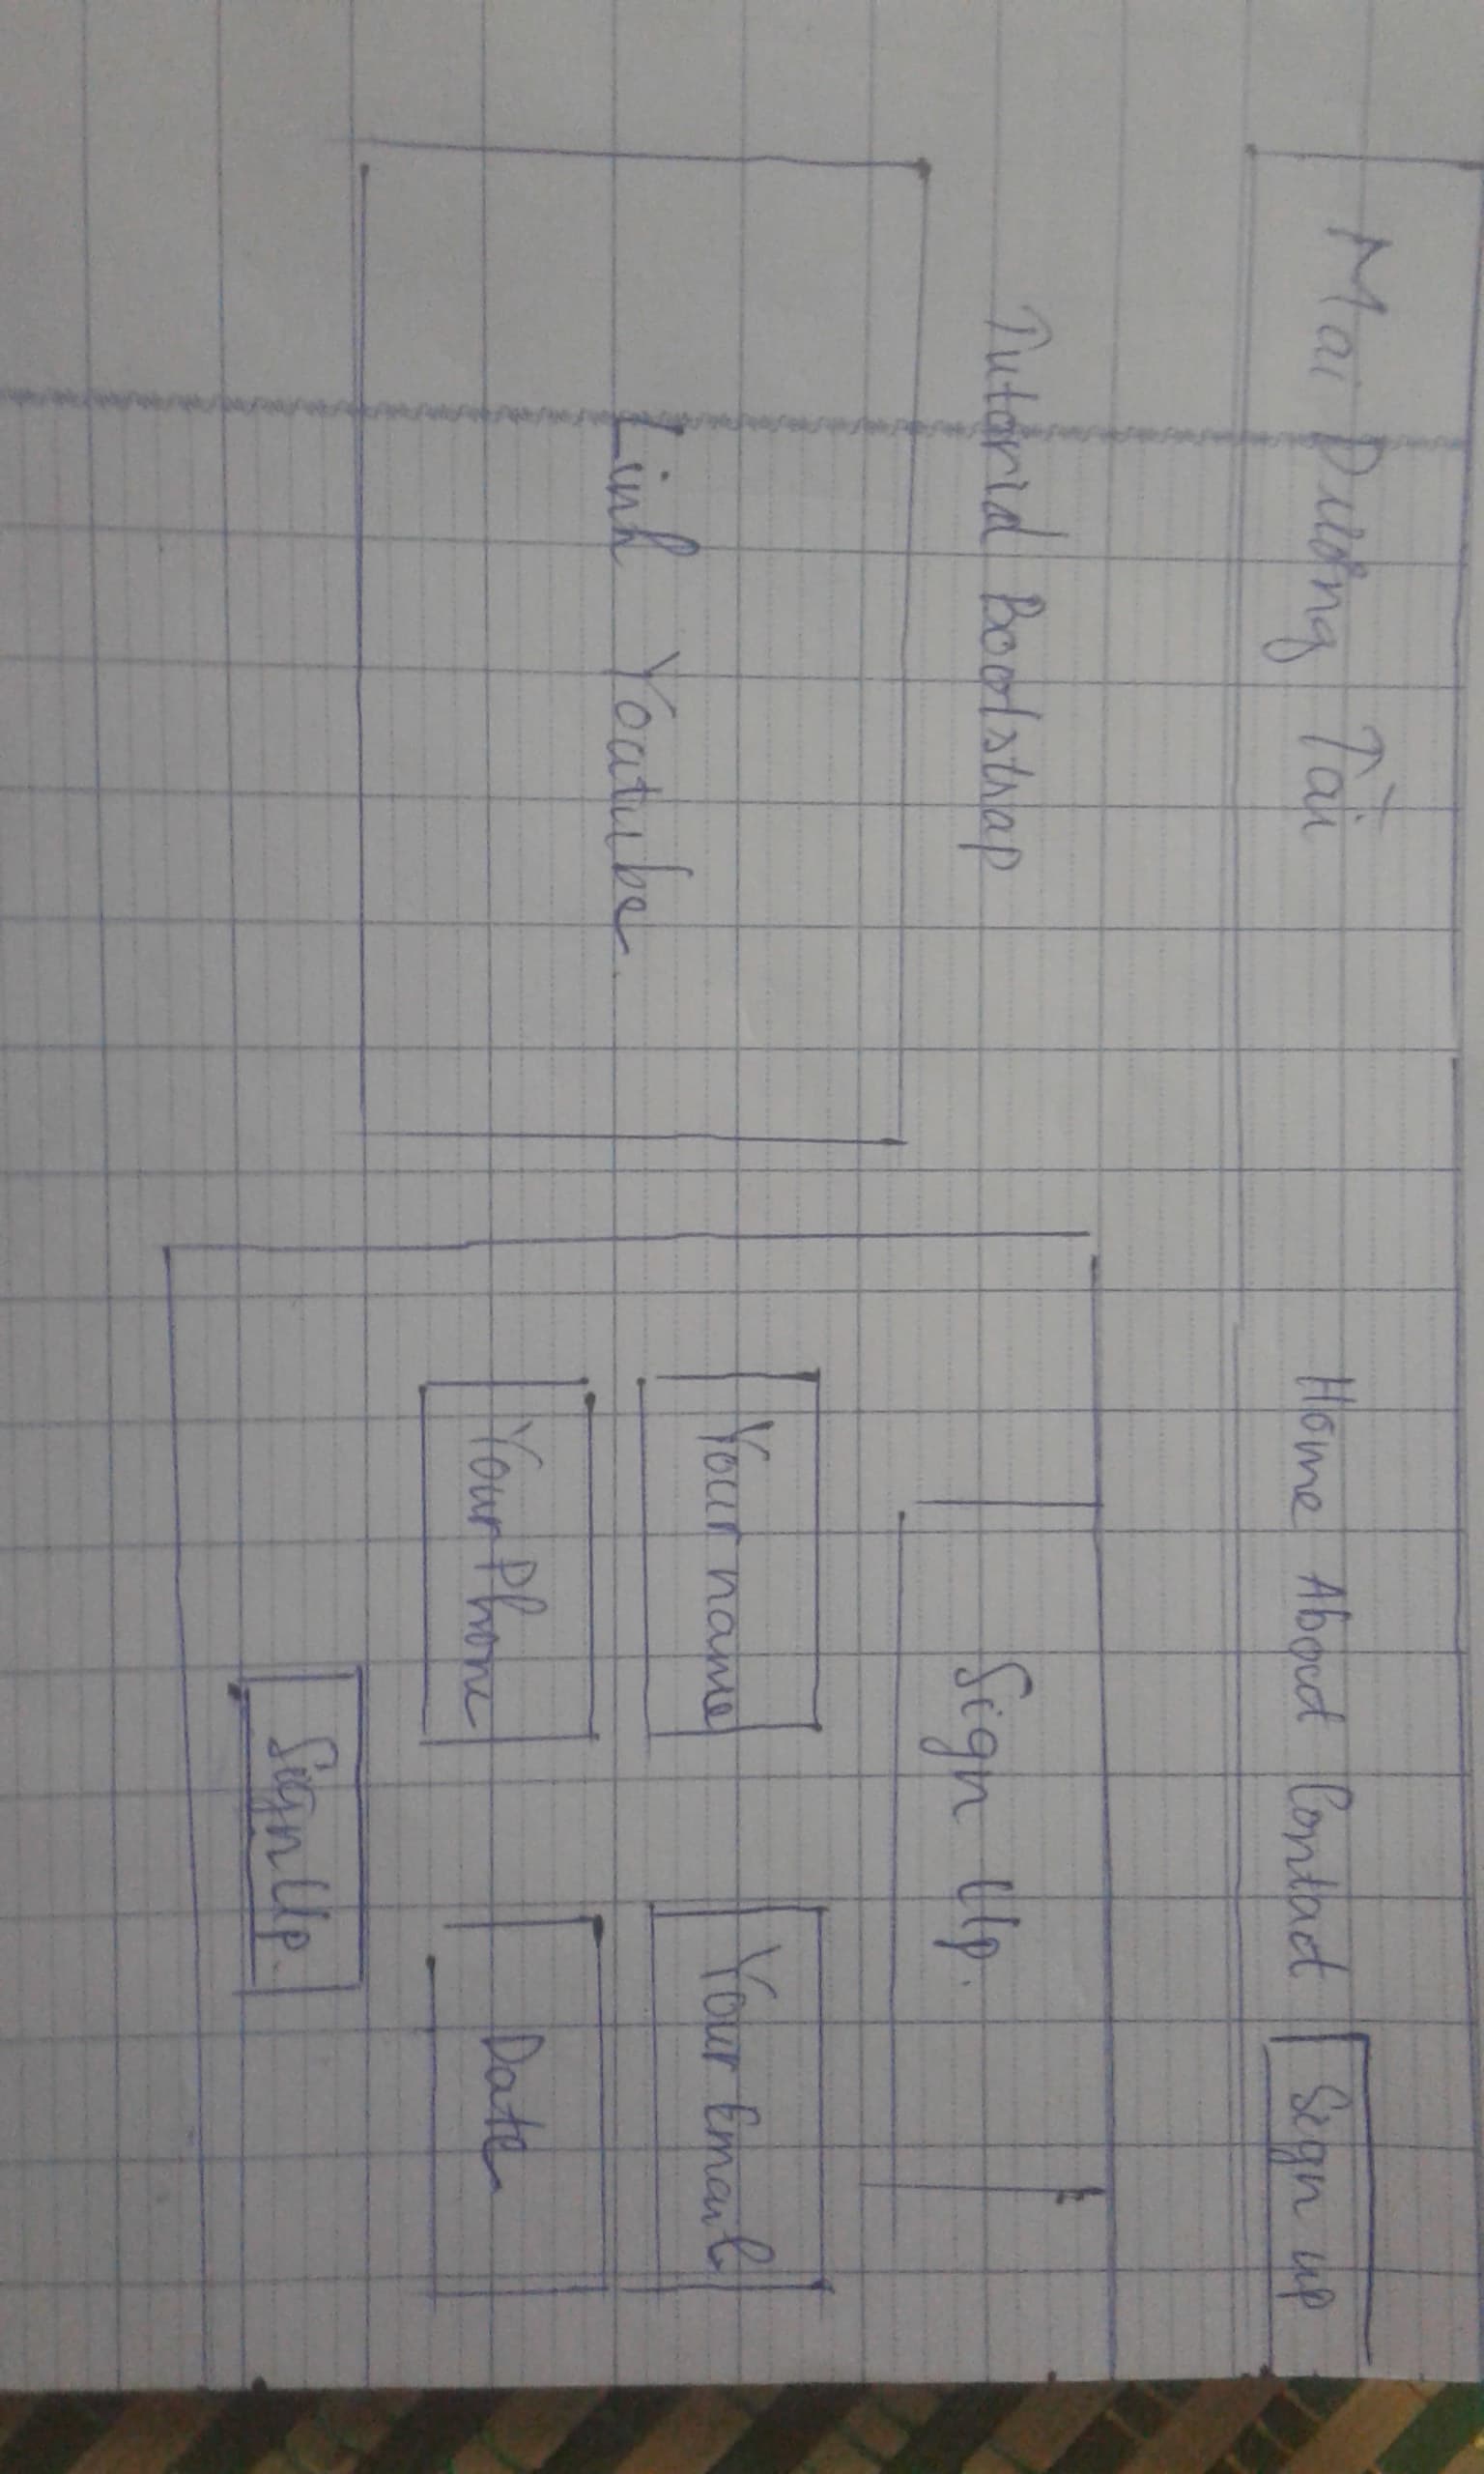 Mai Dương Tài
Home About Contact Sign up
Tutorial Bootstrap
Link Youtube
Sign Up.
Your name
Your Email
Your Phone
Date
Sign Up.